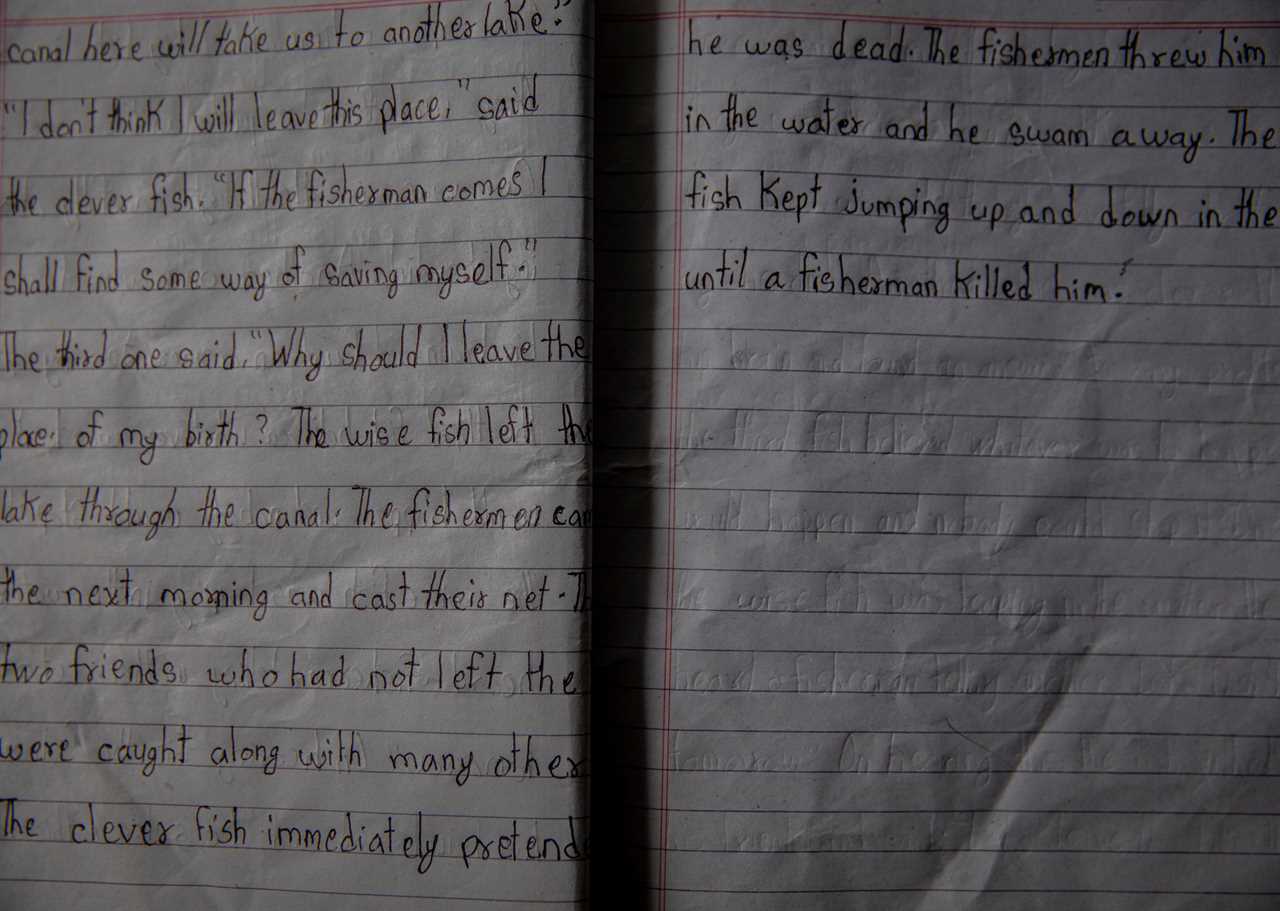 canal here will take us to another lake."
"I don't think I will leave this place," said
the clever fish. "If the fisherman comes I
shall find some way of saving myself."
The third one said. "Why should I leave the
place of my birth? The wise fish left the
lake through the canal. The fishermen
the next morning and cast their net.
two friends who had not left the
were caught along with many other
The clever fish immediately pretend
he was dead. The fishermen threw him
in the water and he swam away. The
fish kept jumping up and down in the
until a fisherman killed him."